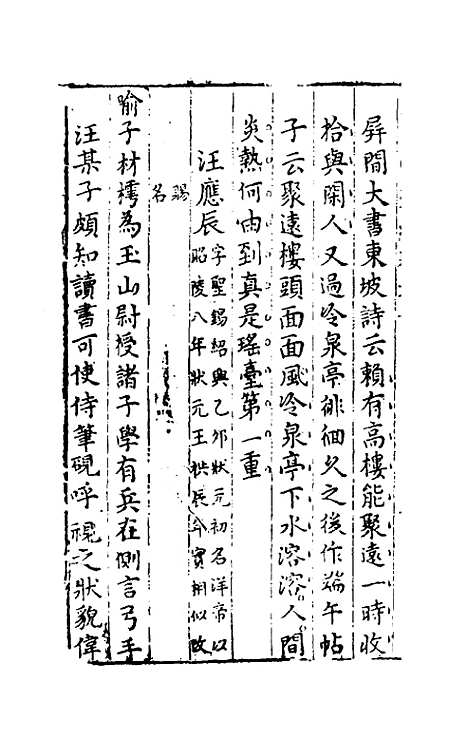 屏間大書東坡詩云賴有高樓能聚遠一時收
拾與閑人又過冷泉亭徘徊久之後作端午帖
子云聚遠樓頭面面風冷泉亭下水溶溶人間
炎熱何由到真是瑤臺第一重
汪應辰
字聖錫紹興乙卯狀元初名洋帝以
昭陵八年狀元王拱辰今實相似改
賜
名
喻子材樗為玉山尉授諸子學有兵在側言弓手
汪某子頗知讀書可使侍筆硯呼視之狀貌偉